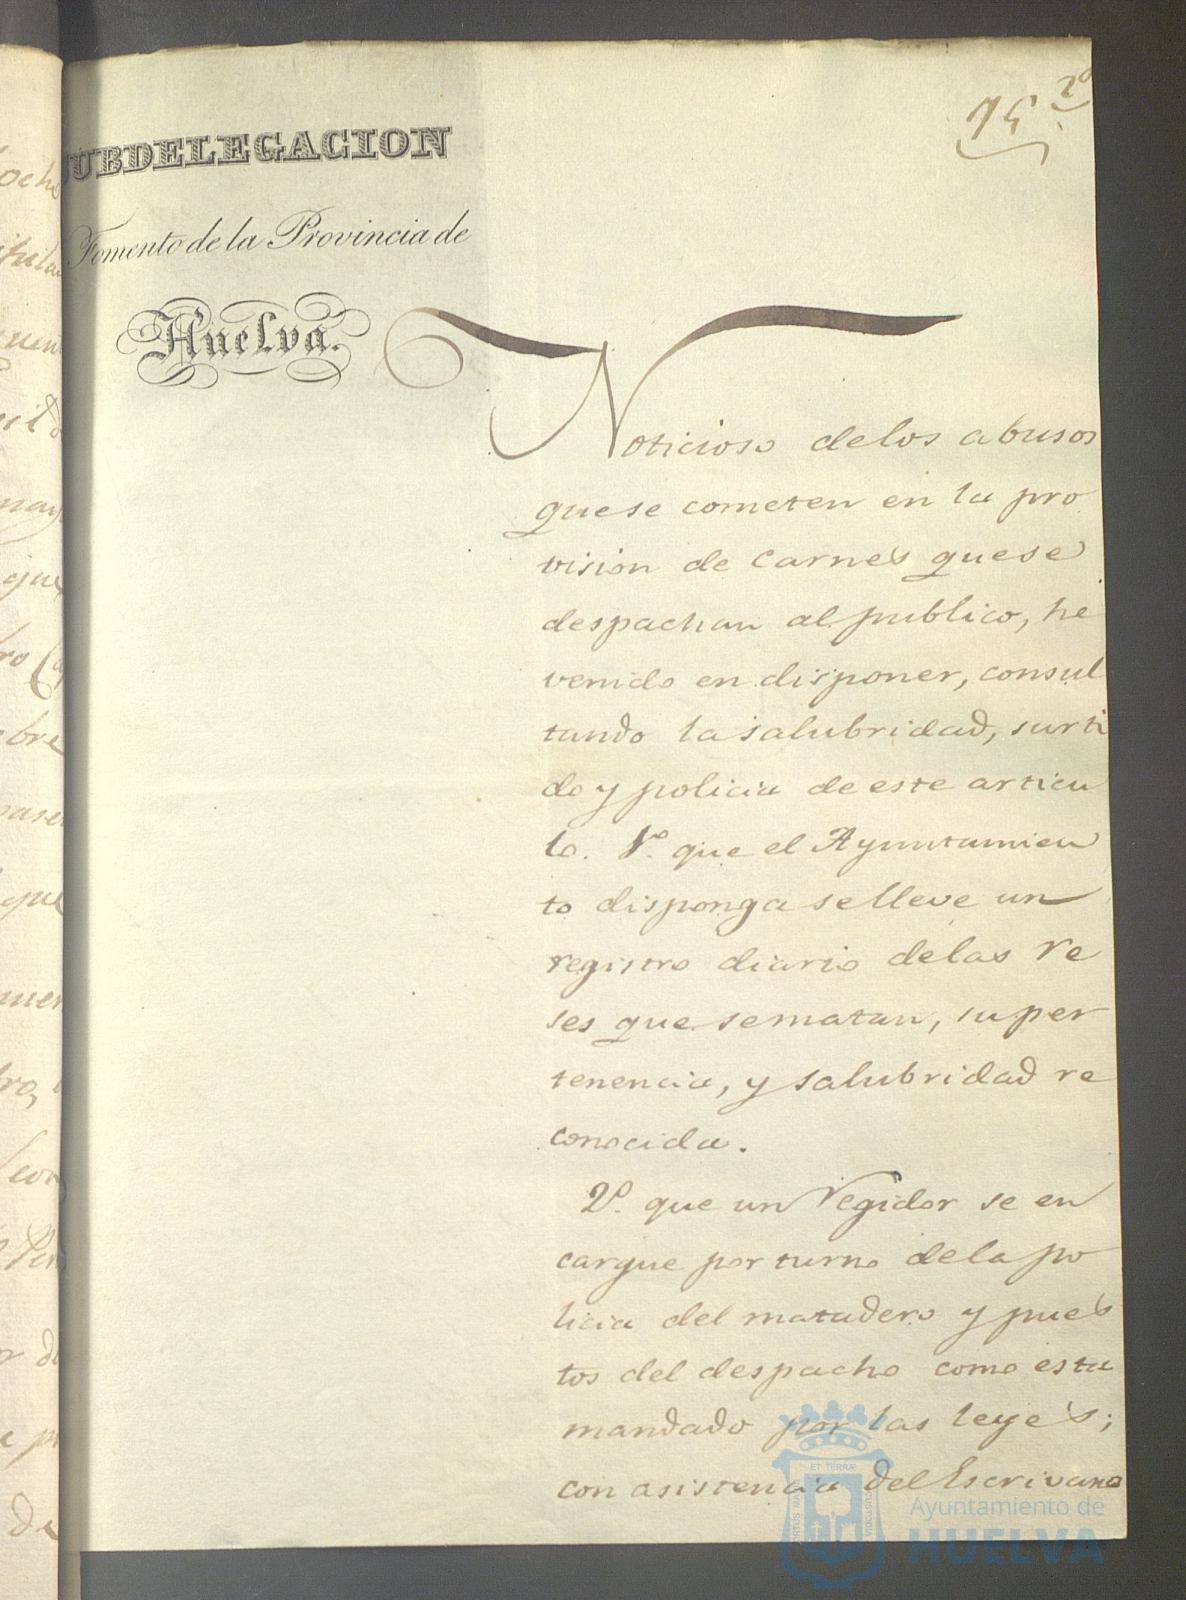 UBDELEGACION
Fomento de la Provincia de
Huelva.
Noticioso delos abusos
quese cometen en la pro
vision de carnes quese
despachan al publico, he
venido en disponer, consul
tando la salubridad, surti
do y policia de este articu
lo. 1º. que el Ayuntamien
to disponga se lleve un
registro diario delas re
ses que sematan, su per
tenencia, y salubridad re
conocida.
2º. que un Regidor se en
cargue por turno dela po
licia del matadero y pues
tos del despacho como esta
mandado por las leyes;
con asistencia del Escrivano
ET TERRÆ
CUSTODIA
PORTUS MARIS
Ayuntamiento de
HUELVA